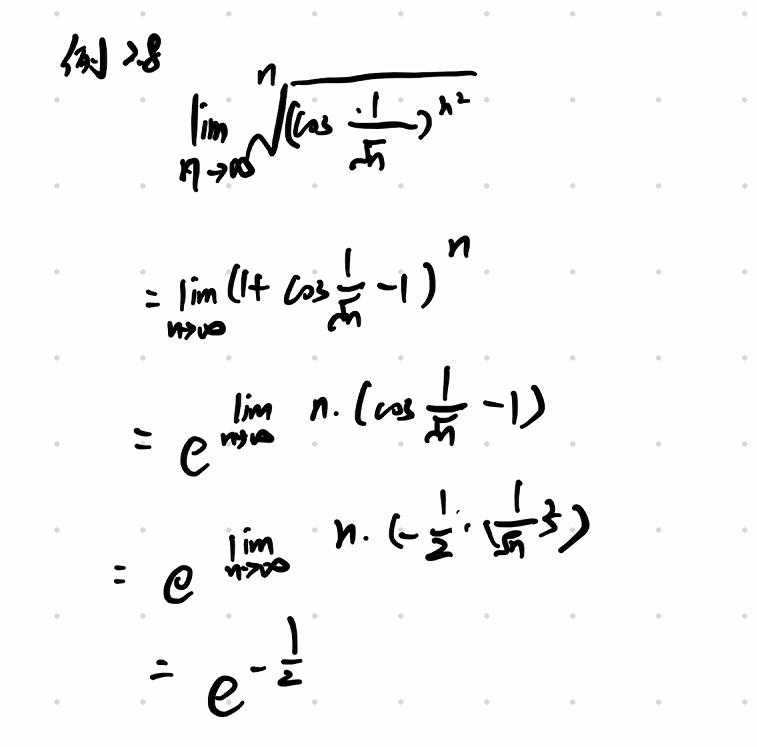 例 2.8
$\lim_{n \to \infty} \sqrt[n]{(\cos \frac{1}{\sqrt{n}})^{n^2}}$
$= \lim_{n \to \infty} (1 + \cos \frac{1}{\sqrt{n}} - 1)^n$
$= e^{\lim_{n \to \infty} n \cdot (\cos \frac{1}{\sqrt{n}} - 1)}$
$= e^{\lim_{n \to \infty} n \cdot (-\frac{1}{2} \cdot (\frac{1}{\sqrt{n}})^2)}$
$= e^{-\frac{1}{2}}$